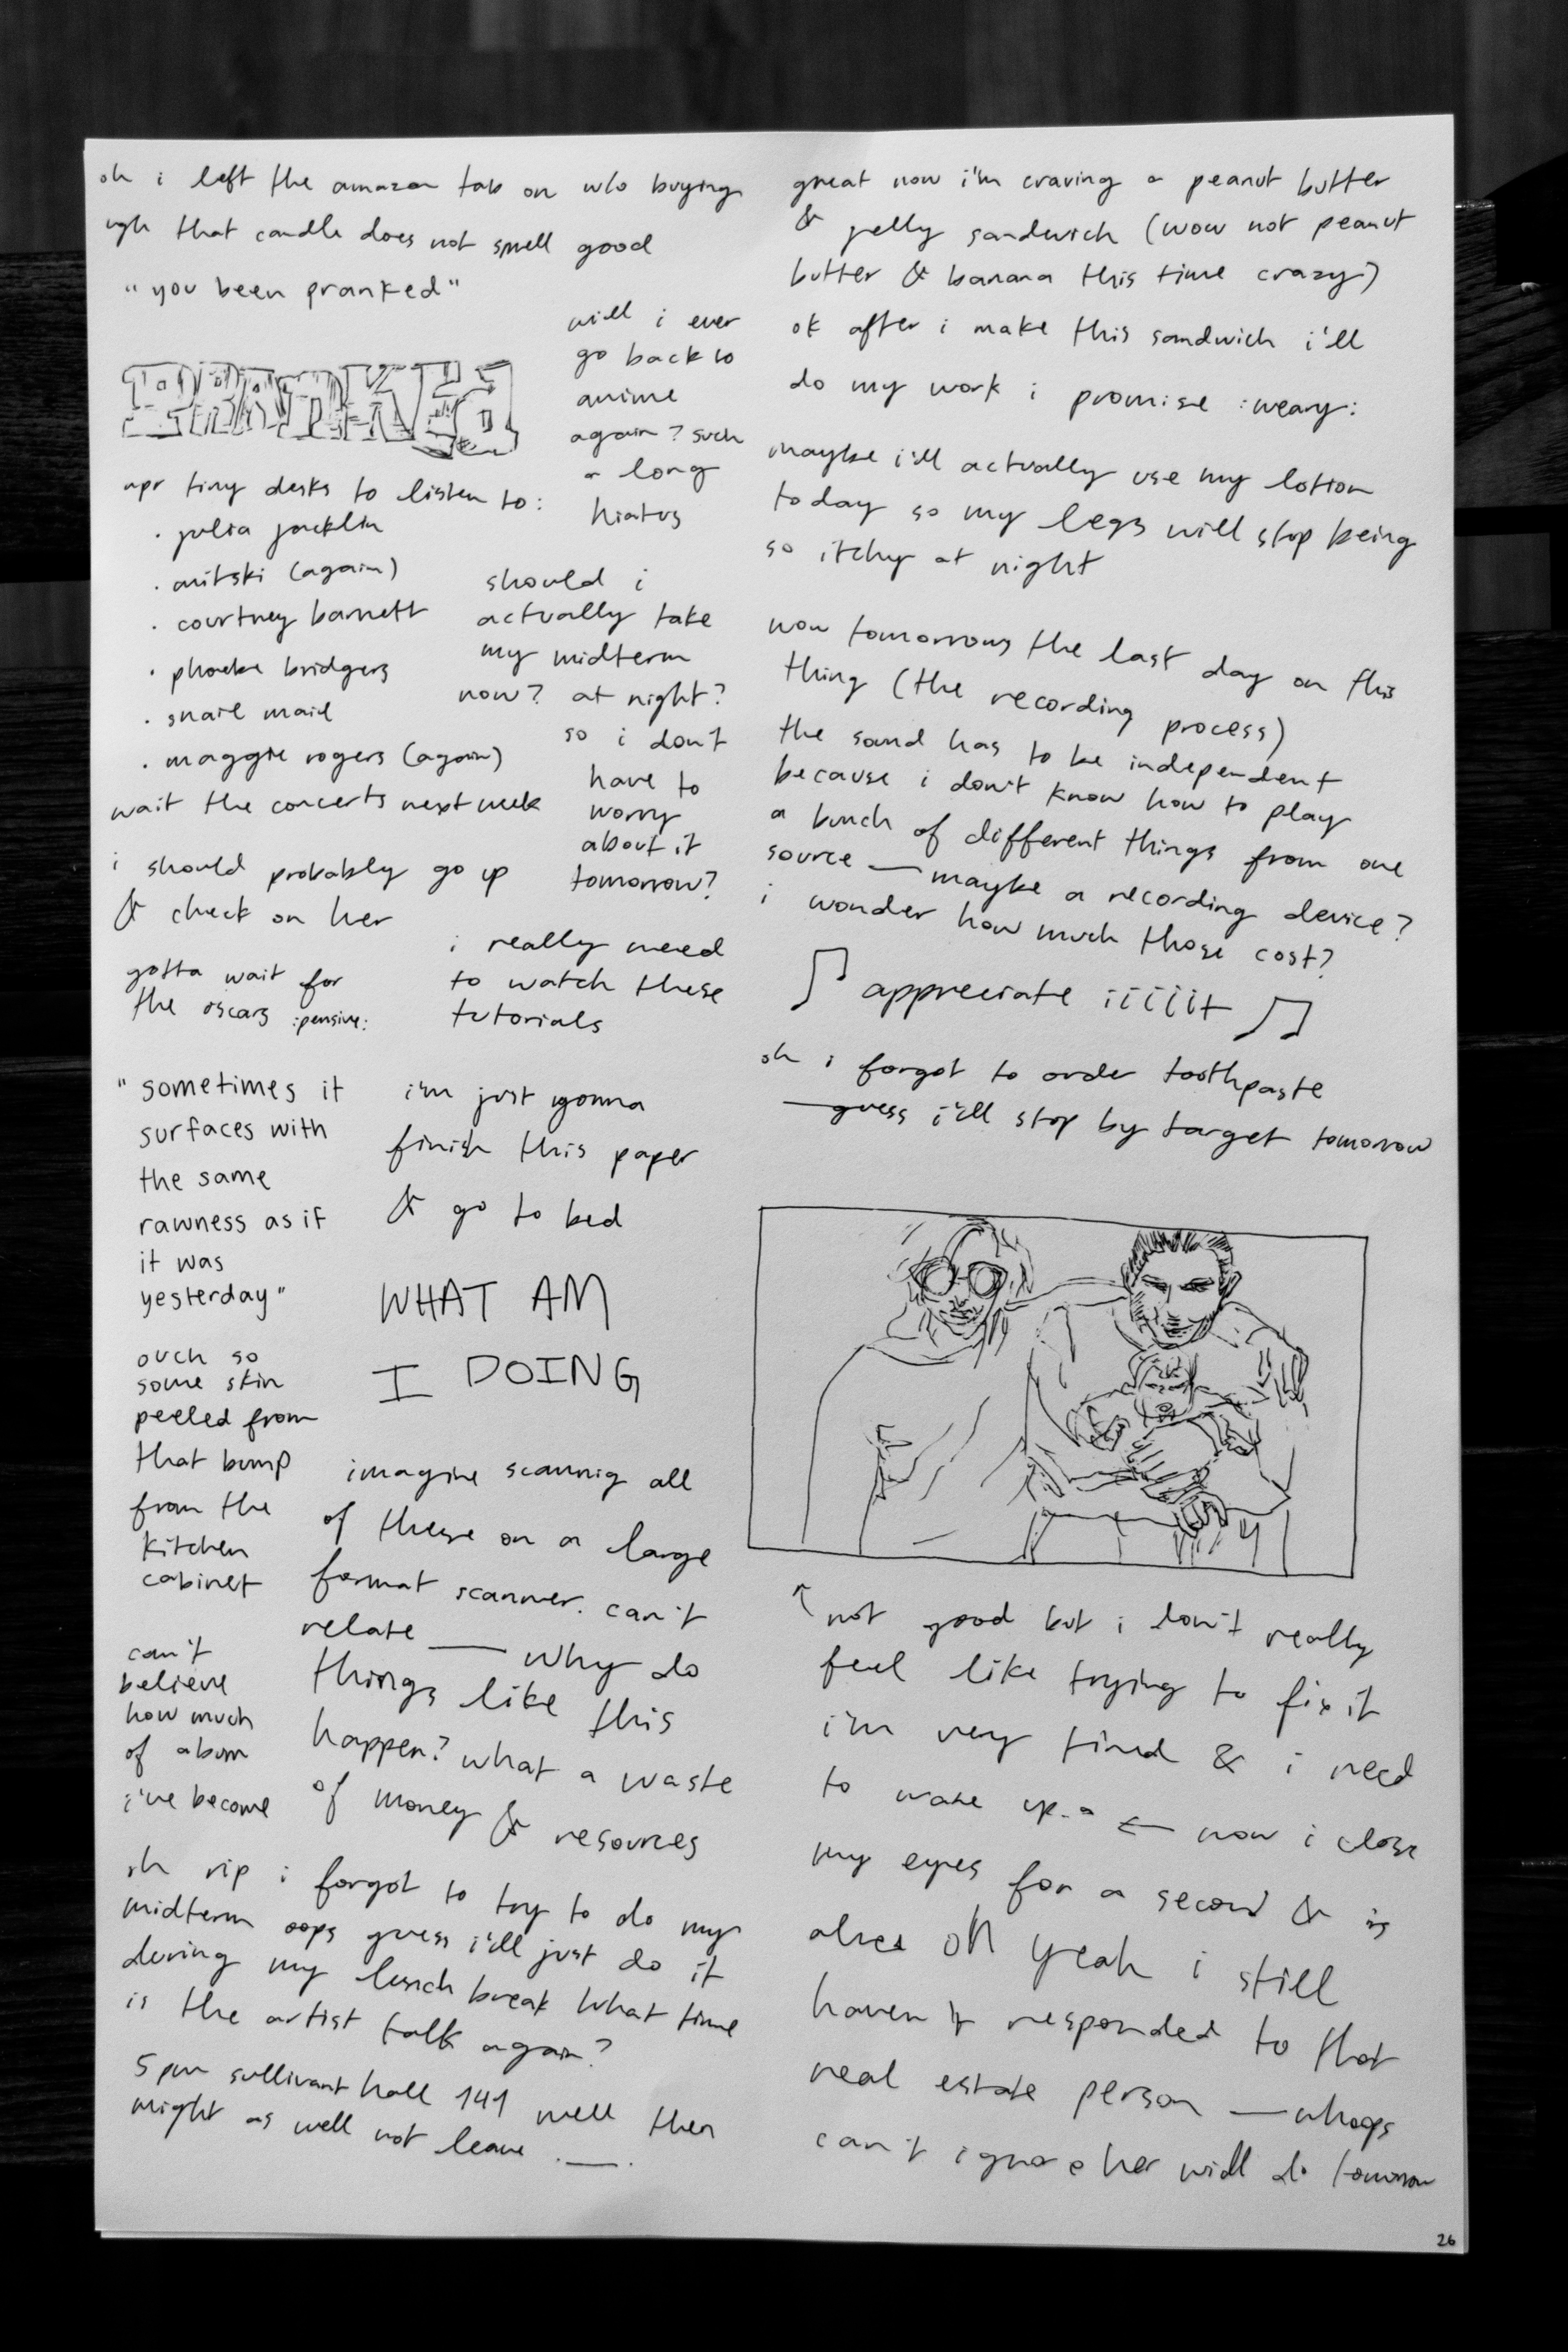 oh i left the amazon tab on w/o buying
ugh that candle does not smell good
"you been pranked"
PRANKEd
will i ever
go back to
anime
again? such
a long
hiatus
npr tiny desks to listen to:
· julia jacklin
· mitski (again)
· courtney barnett
· phoebe bridgers
· snail mail
· maggie rogers (again)
should i
actually take
my midterm
now? at night?
so i don't
have to
worry
about it
tomorrow?
wait the concerts next week
i should probably go up
& check on her
gotta wait for
the oscars :pensive:
i really need
to watch these
tutorials
"sometimes it
surfaces with
the same
rawness as if
it was
yesterday"
i'm just gonna
finish this paper
& go to bed
WHAT AM
I DOING
ouch so
some skin
peeled from
that bump
from the
kitchen
cabinet
imagine scannig all
of these on a large
format scanner. can't
relate — why do
things like this
happen? what a waste
of money & resources
can't
believe
how much
of a bum
i've become
oh rip i forgot to try to do my
midterm oops guess i'll just do it
during my lunch break what time
is the artist talk again?
5 pm sullivant hall 141 well then
might as well not leave .__.
great now i'm craving a peanut butter
& jelly sandwich (wow not peanut
butter & banana this time crazy)
ok after i make this sandwich i'll
do my work i promise :weary:
maybe i'll actually use my lotion
today so my legs will stop being
so itchy at night
wow tomorrows the last day on this
thing (the recording process)
the sound has to be independent
because i don't know how to play
a bunch of different things from one
source — maybe a recording device?
i wonder how much those cost?
♫ appreciate iiiiit ♫
oh i forgot to order toothpaste
— guess i'll stop by target tomorrow
↑ not good but i don't really
feel like trying to fix it
i'm very tired & i need
to wake up.. ← now i close
my eyes for a second & is
oh yeah i still
haven't responded to that
real estate person — whoops
can't ignore her will do tomorrow
26